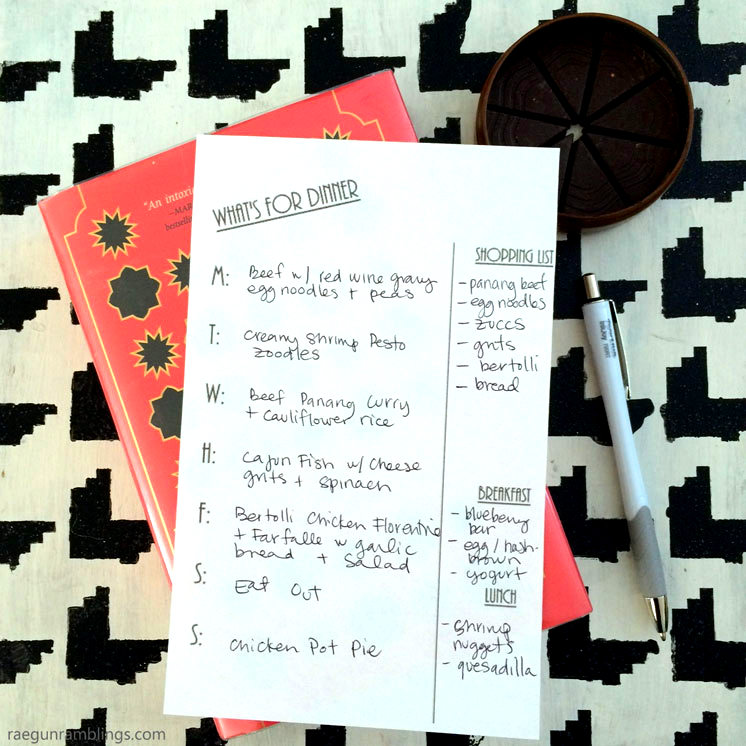 "An intoxic
—MAR
bestsell
WHAT'S FOR DINNER
M: Beef w/ red wine gravy
egg noodles + peas
T: Creamy Shrimp Pesto
Zoodles
W: Beef Panang Curry
+ cauliflower rice
H: Cajun Fish w/ Cheese
grits + spinach
F: Bertolli Chicken Florentine
+ Farfalle w garlic
bread + Salad
S: Eat Out
S: Chicken Pot Pie
SHOPPING LIST
- panang beef
- egg noodles
- zuccs
- grits
- bertolli
- bread
BREAKFAST
- blueberry
bar
- egg / hash-
brown
- yogurt
LUNCH
- shrimp
nuggets
- quesadilla
raegunramblings.com